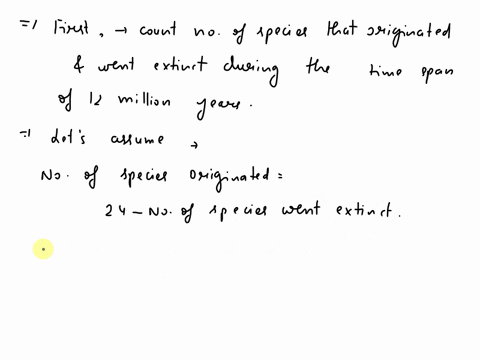 => First, → count no. of species that originated
& went extinct during the time span
of 12 million years.
=> Let's assume →
No. of species originated =
24 - No. of species went extinct.